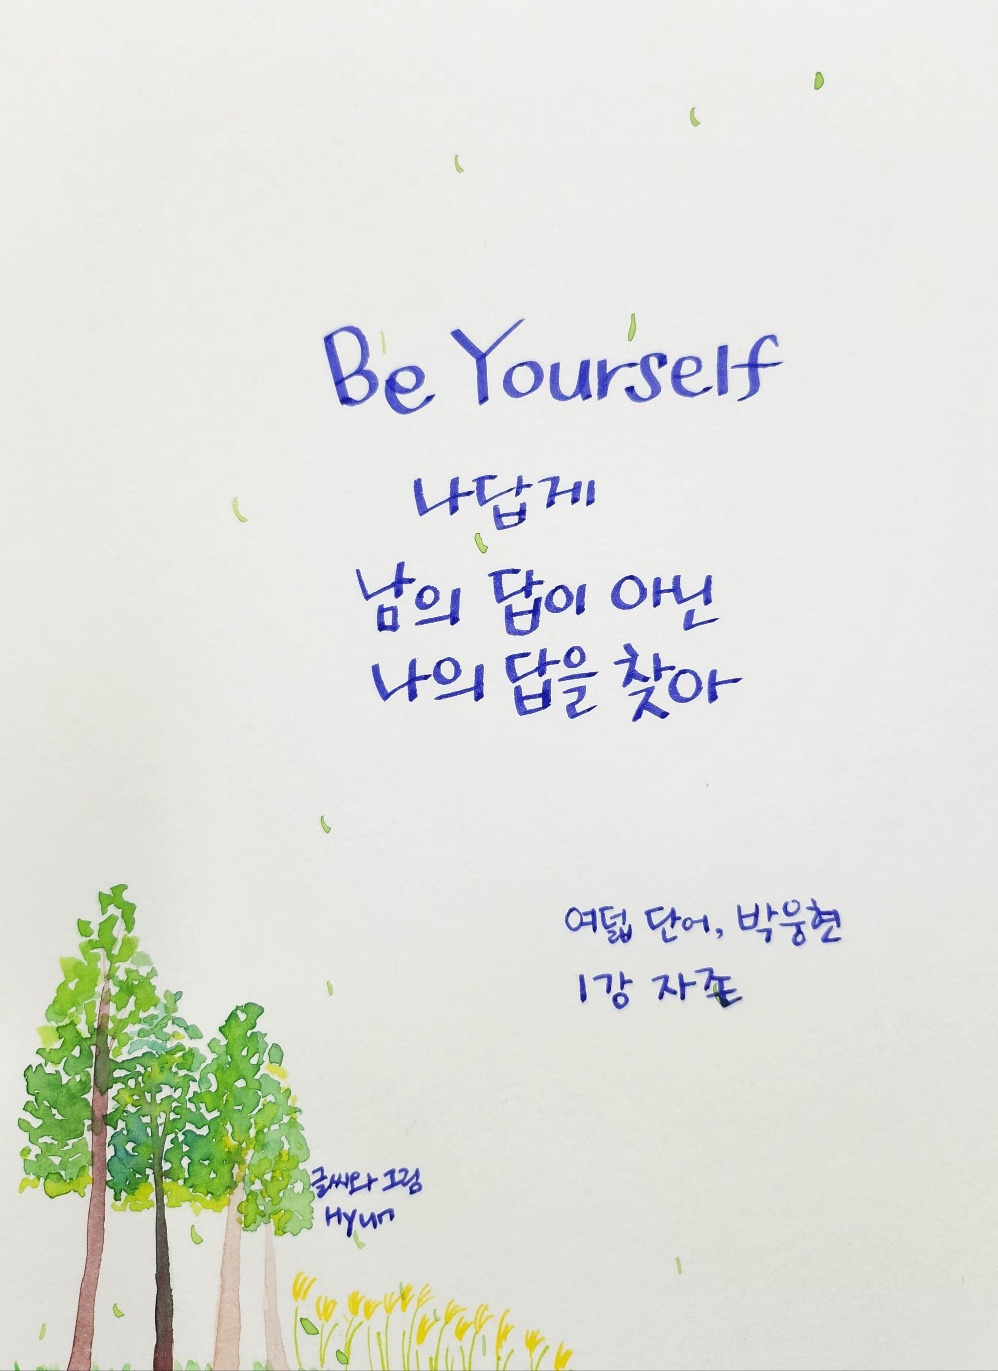 Be Yourself
나답게
남의 답이 아닌
나의 답을 찾아
여덟 단어, 박웅현
1강 자존
글씨와 그림
Hyun